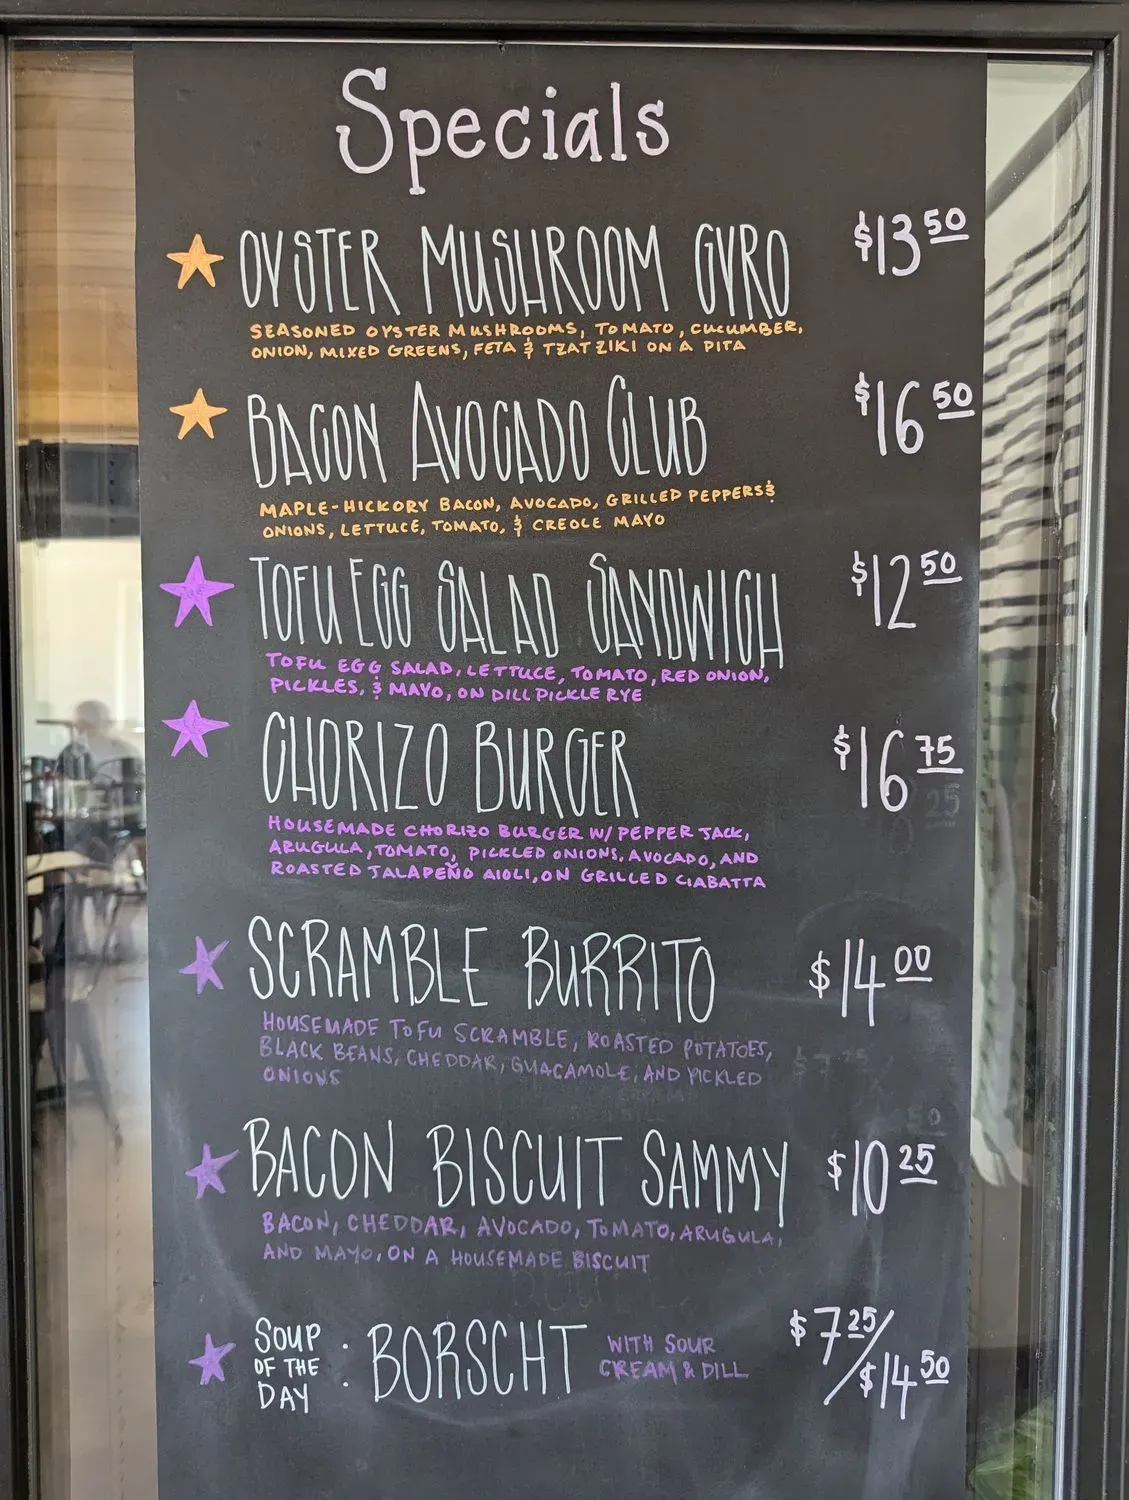 Specials
OYSTER MUSHROOM GYRO $13 50
SEASONED OYSTER MUSHROOMS, TOMATO, CUCUMBER,
ONION, MIXED GREENS, FETA & TZATZIKI ON A PITA
BACON AVOCADO CLUB $16 50
MAPLE-HICKORY BACON, AVOCADO, GRILLED PEPPERS &
ONIONS, LETTUCE, TOMATO, & CREOLE MAYO
TOFU EGG SALAD SANDWICH $12 50
TOFU EGG SALAD, LETTUCE, TOMATO, RED ONION,
PICKLES, & MAYO, ON DILL PICKLE RYE
CHORIZO BURGER $16 75
HOUSEMADE CHORIZO BURGER W/ PEPPER JACK,
ARUGULA, TOMATO, PICKLED ONIONS, AVOCADO, AND
ROASTED JALAPEÑO AIOLI, ON GRILLED CIABATTA
SCRAMBLE BURRITO $14 00
HOUSEMADE TOFU SCRAMBLE, ROASTED POTATOES,
BLACK BEANS, CHEDDAR, GUACAMOLE, AND PICKLED
ONIONS
BACON BISCUIT SAMMY $10 25
BACON, CHEDDAR, AVOCADO, TOMATO, ARUGULA,
AND MAYO, ON A HOUSEMADE BISCUIT
SOUP
OF THE
DAY
: BORSCHT
WITH SOUR
CREAM & DILL
$7 25/
$14 50